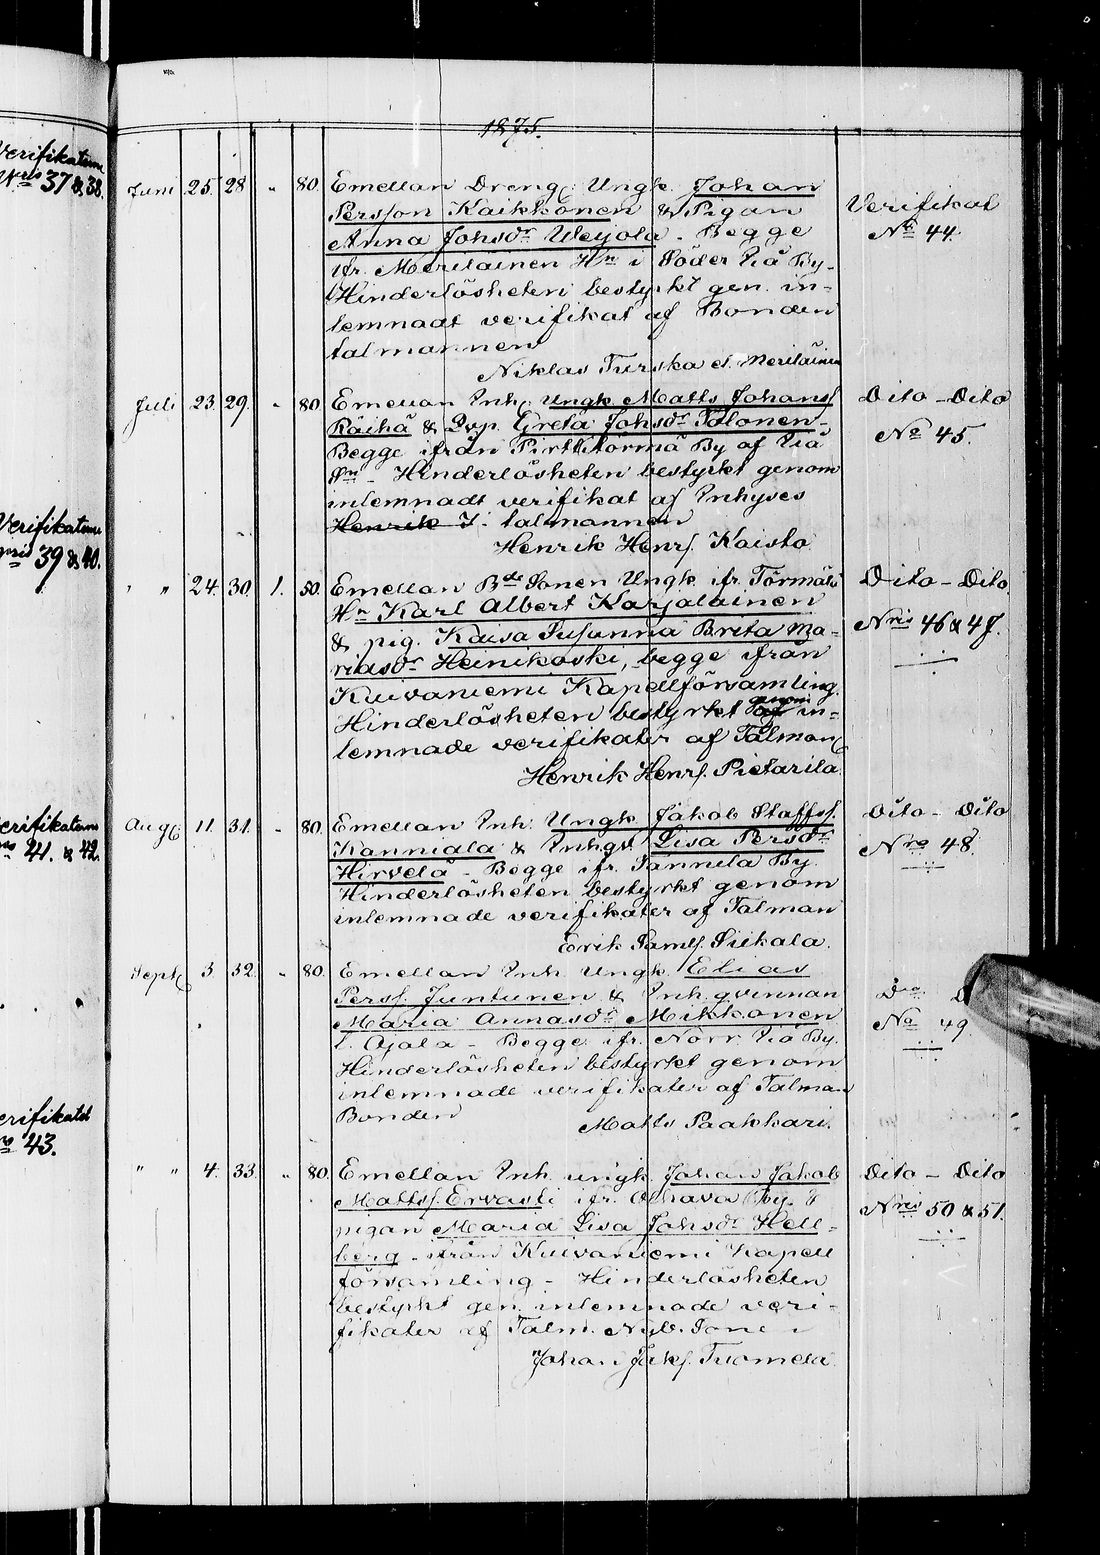 1875.
Verifikaterne
Nris 37 & 38.
Juni 25. 28 " 80. Emellan Dreng. Ungk. Johan
Persson Kaikkonen & Pigan
Anna Johsdr Uleyola - Begge
ifr. Meriläinen Hn i Söder Iiå By-
Hinderlösheten bestyrkt gen. in-
lemnadt verifikat af Bonden
talmannen
Niklas Turska el. Meriläinen
Verifikat
No 44.
Juli 23. 29. " 80. Emellan Inh. Ungk. Matts Johanss.
Raihä & Qvp. Greta Johsdr Talonen-
Begge ifrån Pirttitörmä By af Iiå
Sn - Hinderlösheten bestyrkt genom
inlemnadt verifikat af Inhyses
Henrik J. talmannen
Henrik Henrs. Kaisto
Dito - Dito
No 45.
Verifikaterne
Nris 39 & 40.
" " 24. 30. 1. 50. Emellan Bde Sonen Ungk. ifr. Törmälä
Hn Karl Albert Karjalainen
& pig. Kaisa Susanna Brita Ma-
riasdr Heinikoski, begge ifrån
Kuivaniemi Kapellförsamling.
Hinderlösheten bestyrkt af genom in-
lemnade verifikater af Talman
Henrik Henrs. Pietarila.
Dito - Dito
Nris 46 & 47.
erifikaterne
41. & 42.
Aug. 11. 31. " 80. Emellan Inh. Ungk. Jakob Staffss.
Kanniala & Inhgv. Lisa Persdr
Hirvelä - Begge ifr. Tannila By.
Hinderlösheten bestyrkt genom
inlemnade verifikater af Talman
Erik Samls. Siikala.
Dito - Dito
Nro 48.
Sept. 3. 32. " 80. Emellan Inh. Ungk. Elias
Perss. Juntunen & Inh.qvinnan
Maria Annasdr Mikkonen
l. Ojala - Begge ifr. Norr Iiå By.
Hinderlösheten bestyrkt genom
inlemnade verifikater af Talman
Bonden
Matts Paakkari.
Dio D
No 49
erifikatet
43.
" " 4. 33. " 80. Emellan Inh. ungk. Johan Jakob
Mattss. Ervasti ifr. Olhava By. &
pigan Maria Lisa Johsdr Hell-
berg - ifrån Kuivaniemi Kapell
församling - Hinderlösheten
bestyrkt gen. inlemnade veri-
fikater af Talm. Nyb. Sonen
Johan Jaks. Tuomela.
Dito - Dito
Nris 50 & 51.